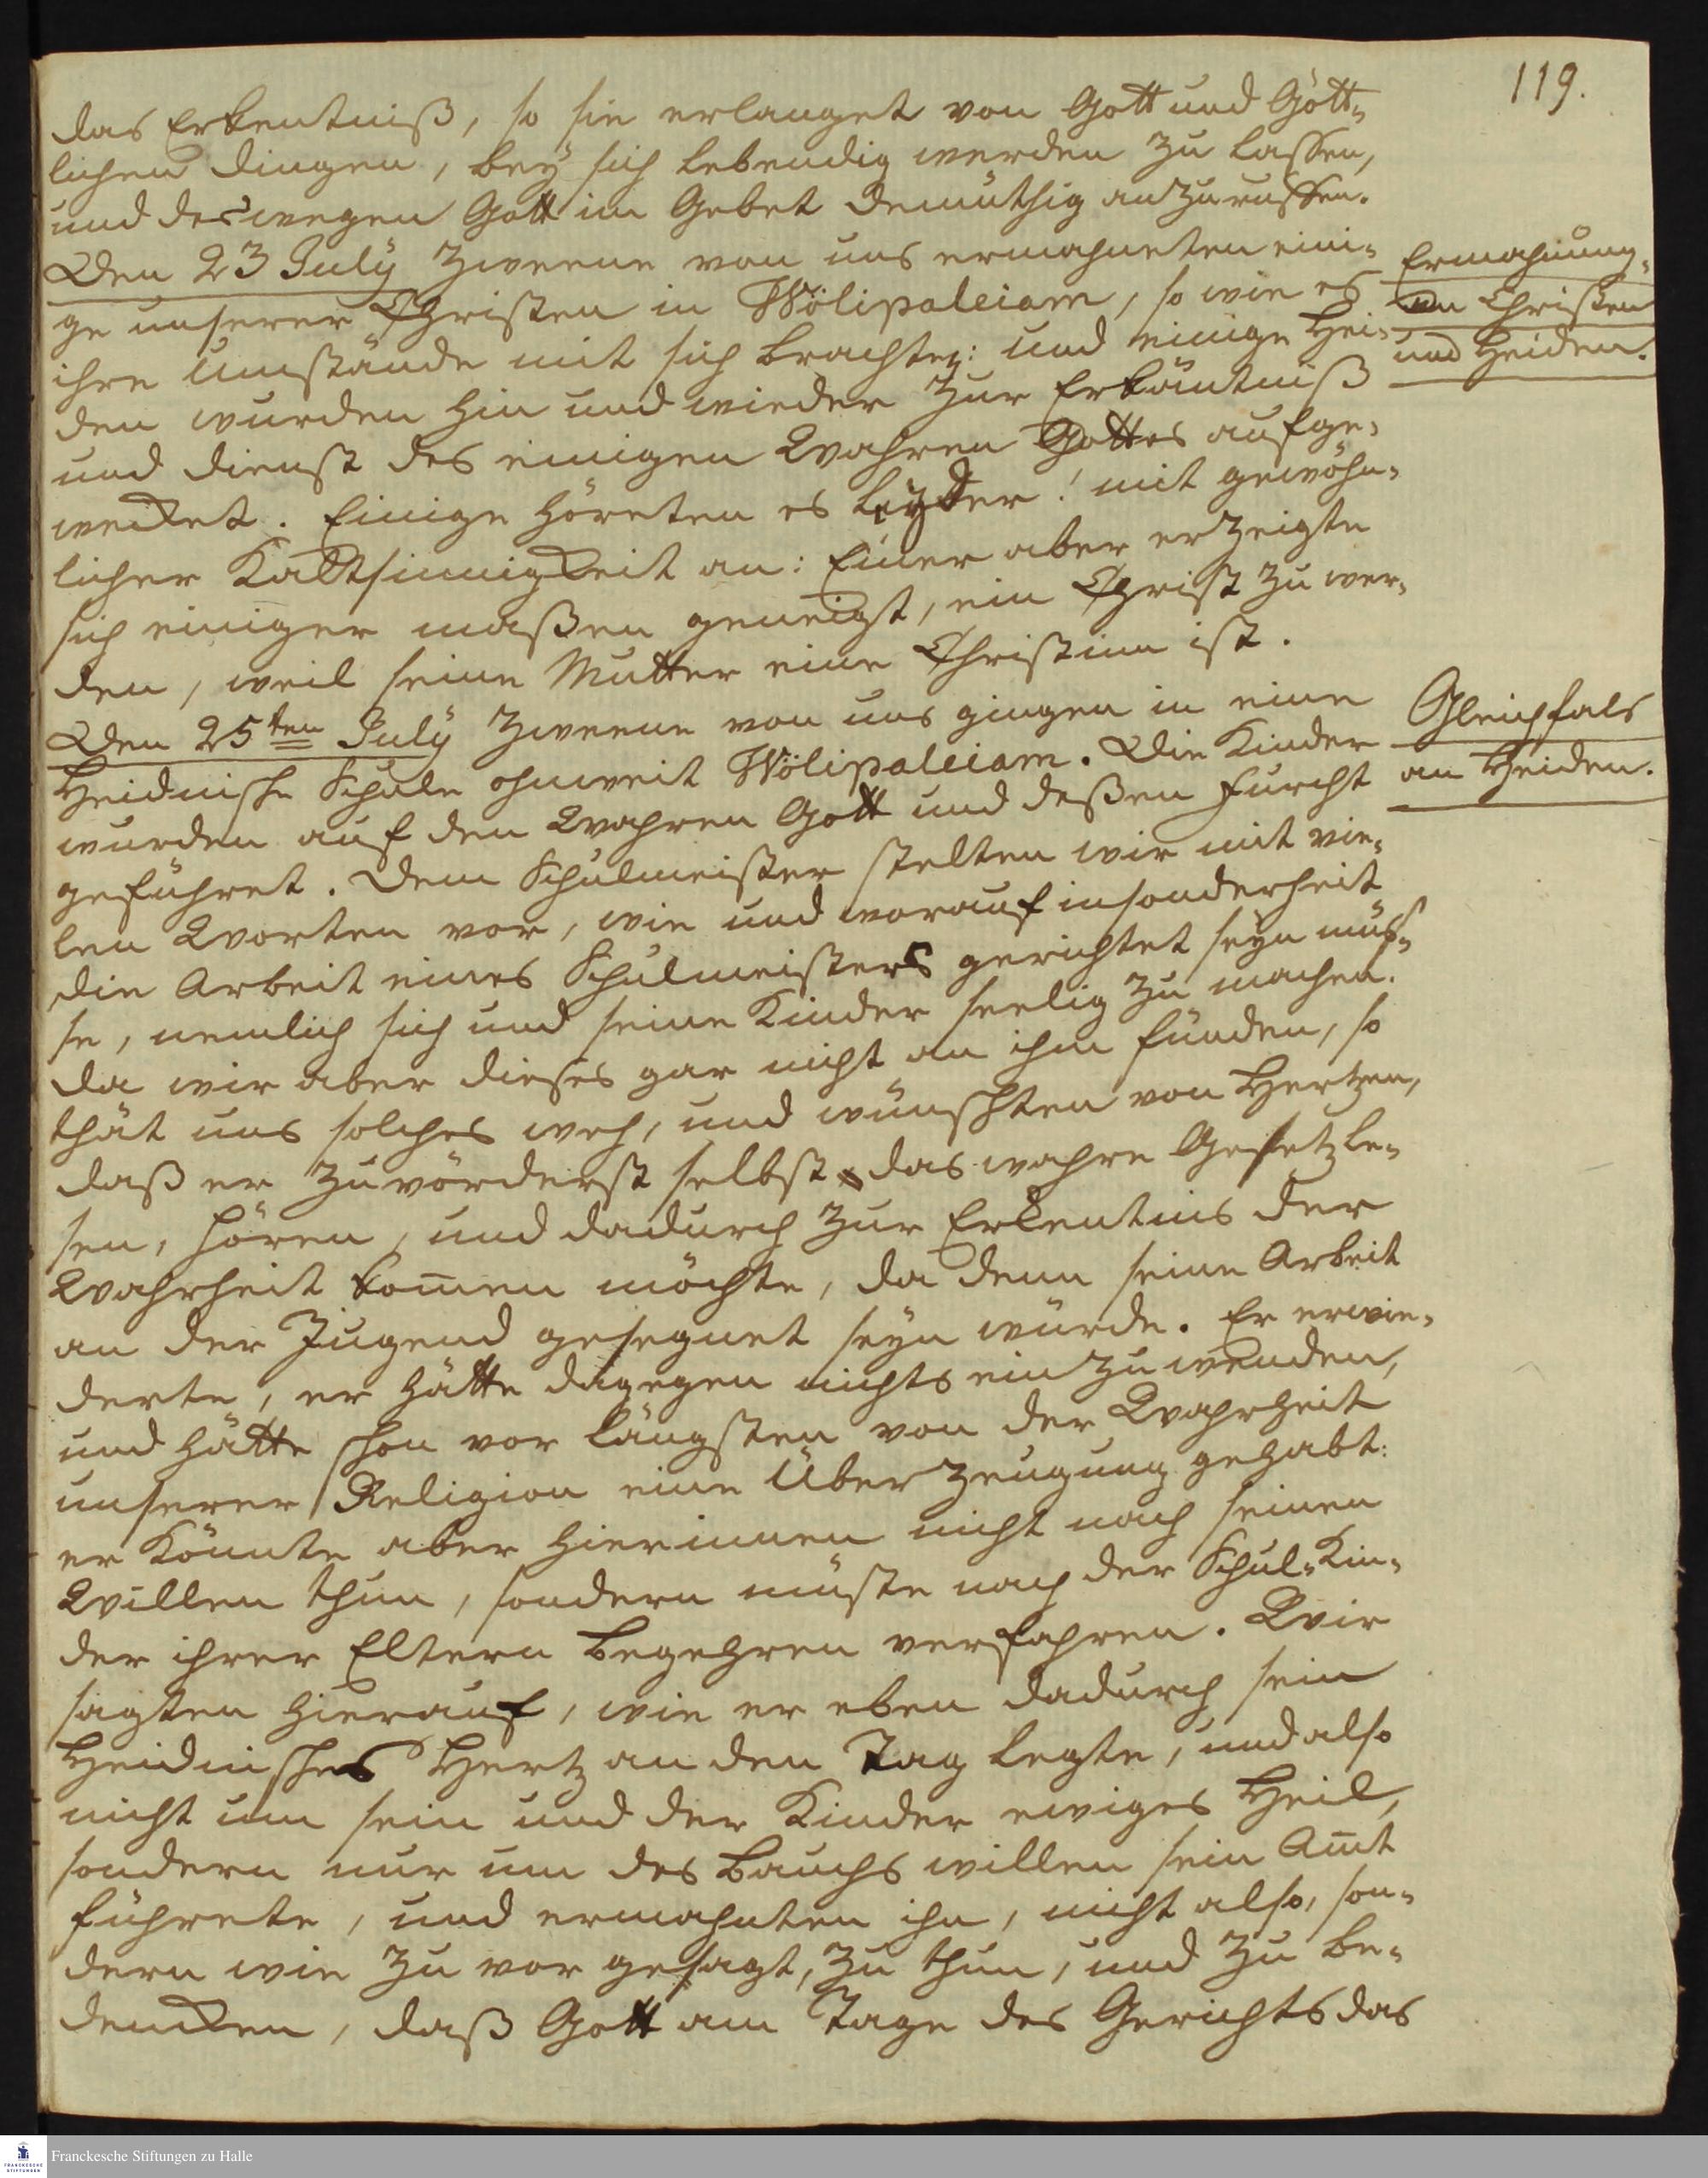 119.
das Erkentniß, so sie erlanget von Gott und Gött-
lichen Dingen, bey sich lebendig werden zu lassen,
und deswegen Gott im Gebet demüthig anzuruffen.
Den 23 July Zweene von uns ermahneten eini-
ge unserer Christen in Wölipaleiam, so wie es
ihre Umstände mit sich brachten: und einige Hei-
den wurden hin und wieder zur Erkäntniß
und Dienst des einigen Wahren Gottes aufge-
wecket. Einige höreten es leyder! mit gewöhn-
licher Kaltsinnigkeit an: Einer aber erzeigte
sich einiger maßen geneigt, ein Christ zu wer-
den, weil seine Mutter eine Christinn ist.
Ermahnung
an Christen
und Heiden.
Den 25ten July Zweene von uns gingen in eine
Heidnische Schule ohnweit Wölipaleiam. Die Kinder
wurden auf den Wahren Gott und deßen Furcht
geführet. Dem Schulmeister stelten wir mit vie-
len Worten vor, wie und worauf insonderheit
die Arbeit eines Schulmeisters gerichtet seyn müs-
se, nemlich sich und seine Kinder seelig zu machen.
da wir aber dieses gar nicht an ihm fünden, so
thät uns solches weh, und wünschten von Hertzen,
daß er zuvörderst selbst das wahre Gesetz le-
sen, hören, und dadurch zur Erkentnis der
Wahrheit kom̅en möchte, da denn seine Arbeit
an der Jugend gesegnet seyn würde. Er erwie-
derte, er hätte dagegen nichts einzuwenden,
und hätte schon vor längsten von der Wahrheit
unserer Religion eine Überzeugung gehabt:
er könnte aber hierinnen nicht nach seinen
Willen thun, sondern müste nach der Schul-Kin-
der ihrer Eltern Begehren verfahren. Wir
sagten hierauf, wie er eben dadurch sein
Heidnisches Hertz an den Tag legte, und also
nicht um sein und der Kinder ewiges Heil,
sondern nur um des Bauchs willen sein Am̅t
führete, und ermahnten ihn, nicht also, son-
dern wie zu vor gesagt, zu thun, und zu be-
dencken, daß Gott am Tage des Gerichts das
Gleichfals
an Heiden.
Franckesche Stiftungen zu Halle
FRANCKESCHE
STIFTUNGEN